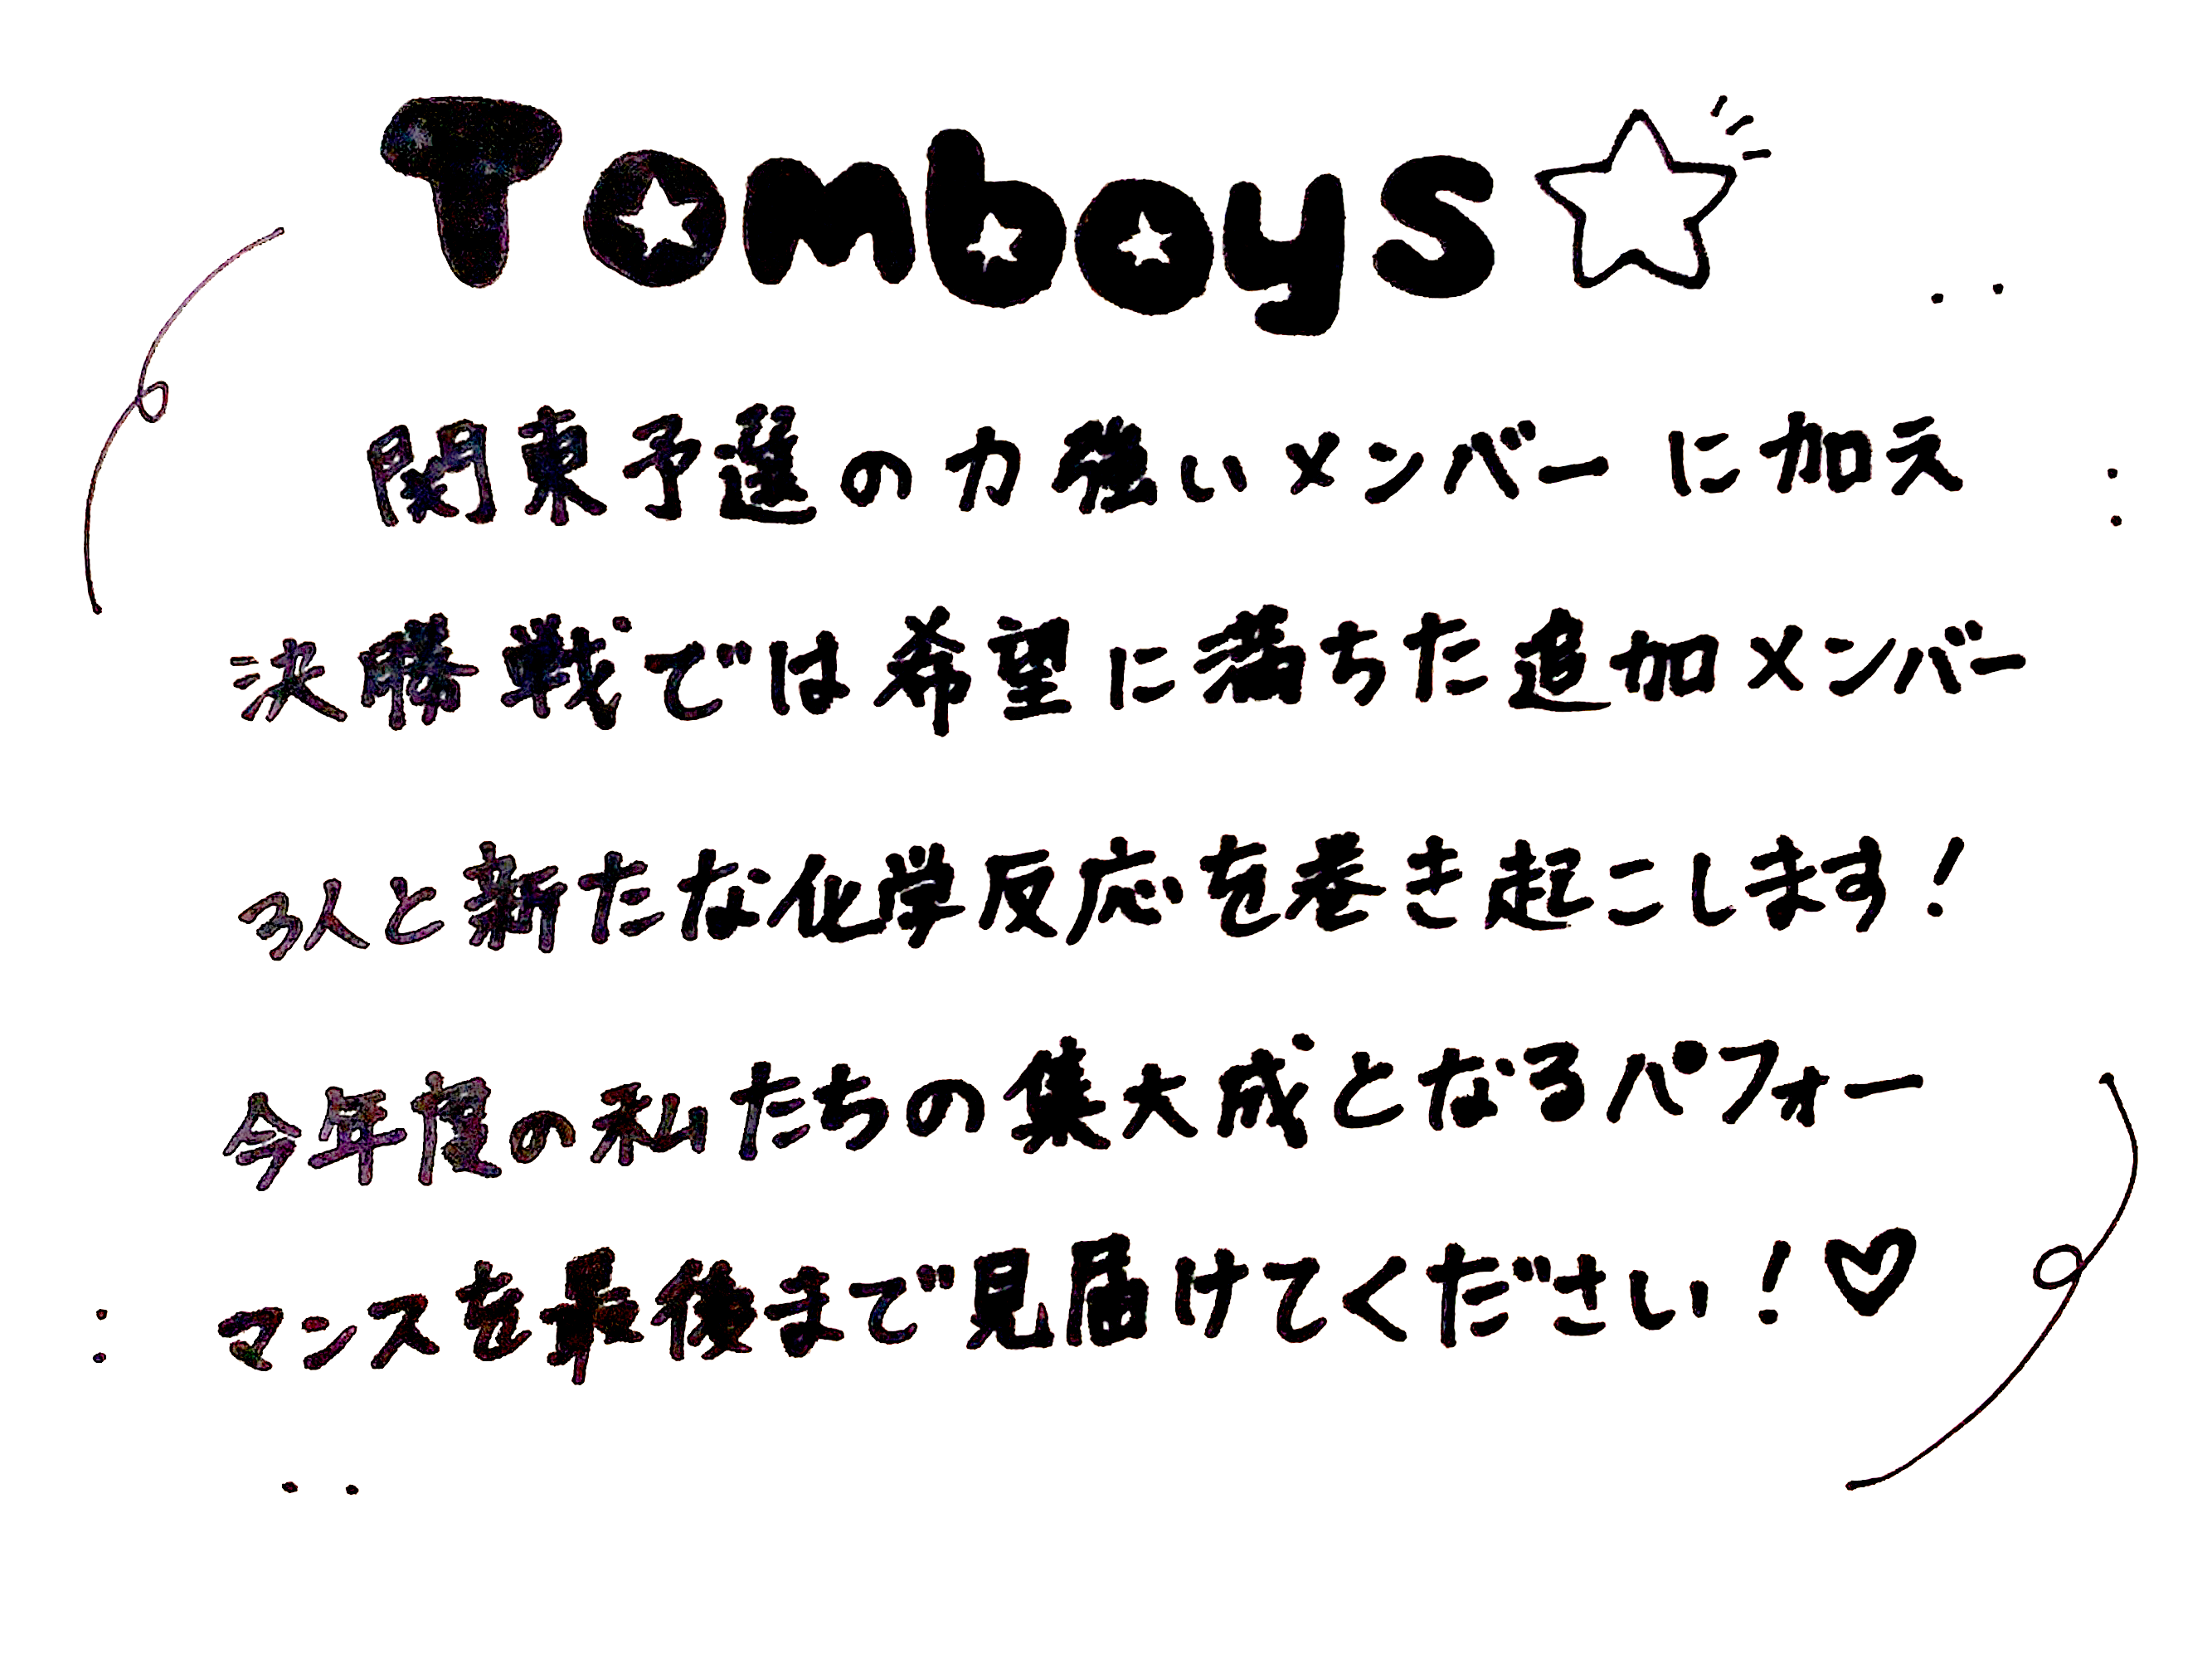 Tomboys☆
関東予選の力強いメンバーに加え
決勝戦では希望に満ちた追加メンバー
3人と新たな化学反応を巻き起こします!
今年度の私たちの集大成となるパフォー
マンスを最後まで見届けてください!♡